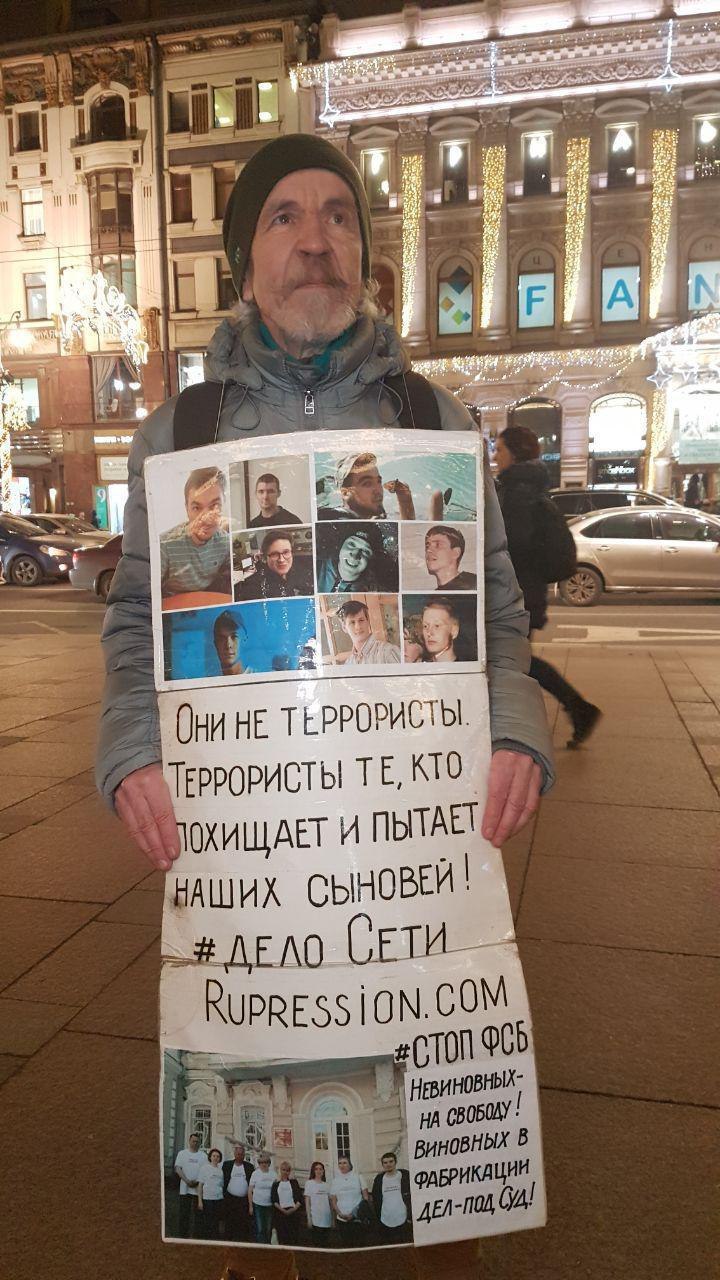 Ц Е Н
F A N
Они не террористы.
Террористы те, кто
похищает и пытает
наших сыновей!
# дело Сети
Rupression.com
#СТОП ФСБ
Невиновных-
на свободу!
Виновных в
фабрикации
дел-под Суд!